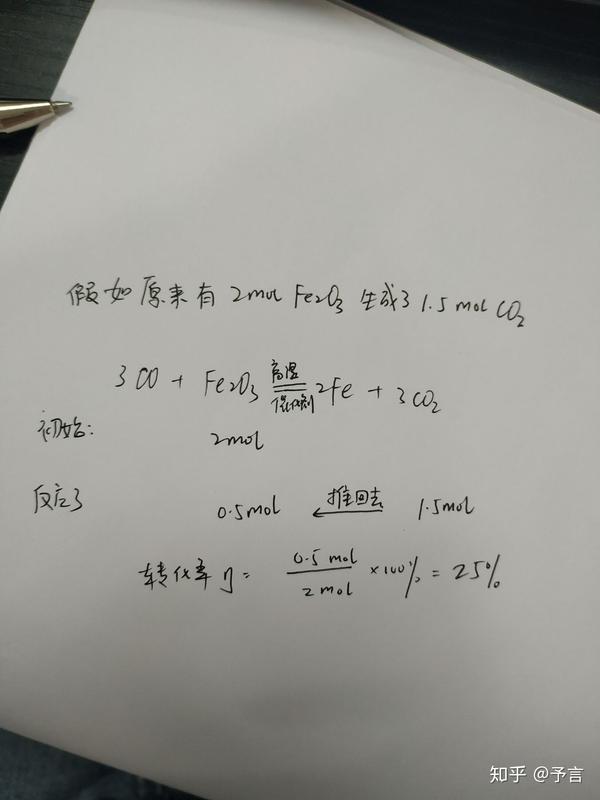 假如原来有 2mol Fe₂O₃ 生成了 1.5 mol CO₂
3 CO + Fe₂O₃ 高温 催化剂 2Fe + 3 CO₂
初始: 2mol
反应了 0.5mol 推回去 1.5mol
转化率 η = 0.5 mol / 2 mol × 100% = 25%
知乎 @予言